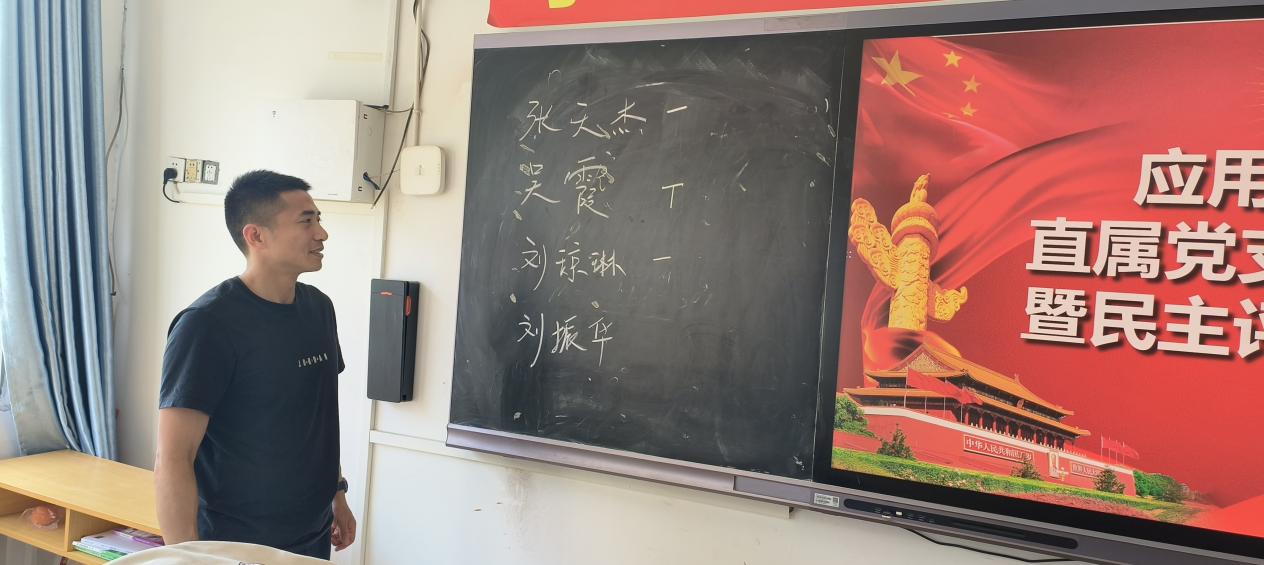 张天杰 一
吴霞 T
刘琼琳 一
刘振华
应用
直属党支
暨民主评
中华人民共和国万岁